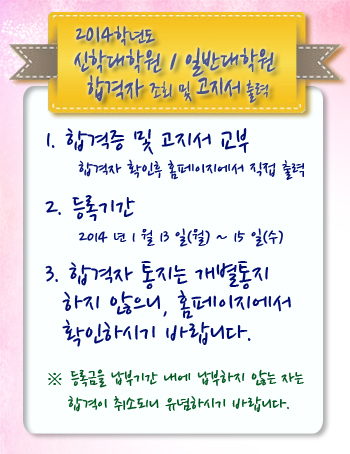 2014학년도
신학대학원 / 일반대학원
합격자 조회 및 고지서 출력
1. 합격증 및 고지서 교부
합격자 확인후 홈페이지에서 직접 출력
2. 등록기간
2014 년 1 월 13 일(월) ~ 15 일(수)
3. 합격자 통지는 개별통지
하지 않으니, 홈페이지에서
확인하시기 바랍니다.
※ 등록금을 납부기간 내에 납부하지 않는 자는
합격이 취소되니 유념하시기 바랍니다.